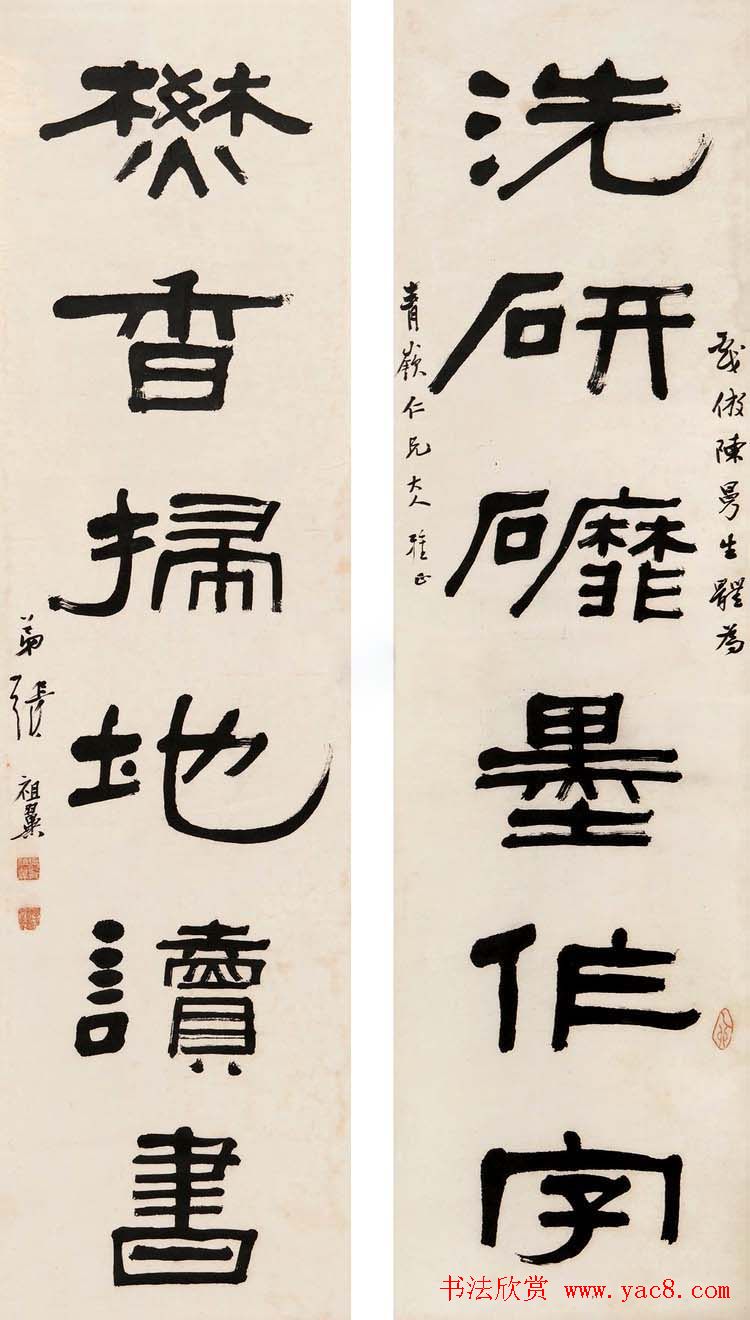 倣陳曼生體為
洗研䃺墨作字
青嶺仁兄大人雅正
焚香掃地讀書
弟張祖翼
书法欣赏 www.yac8.com